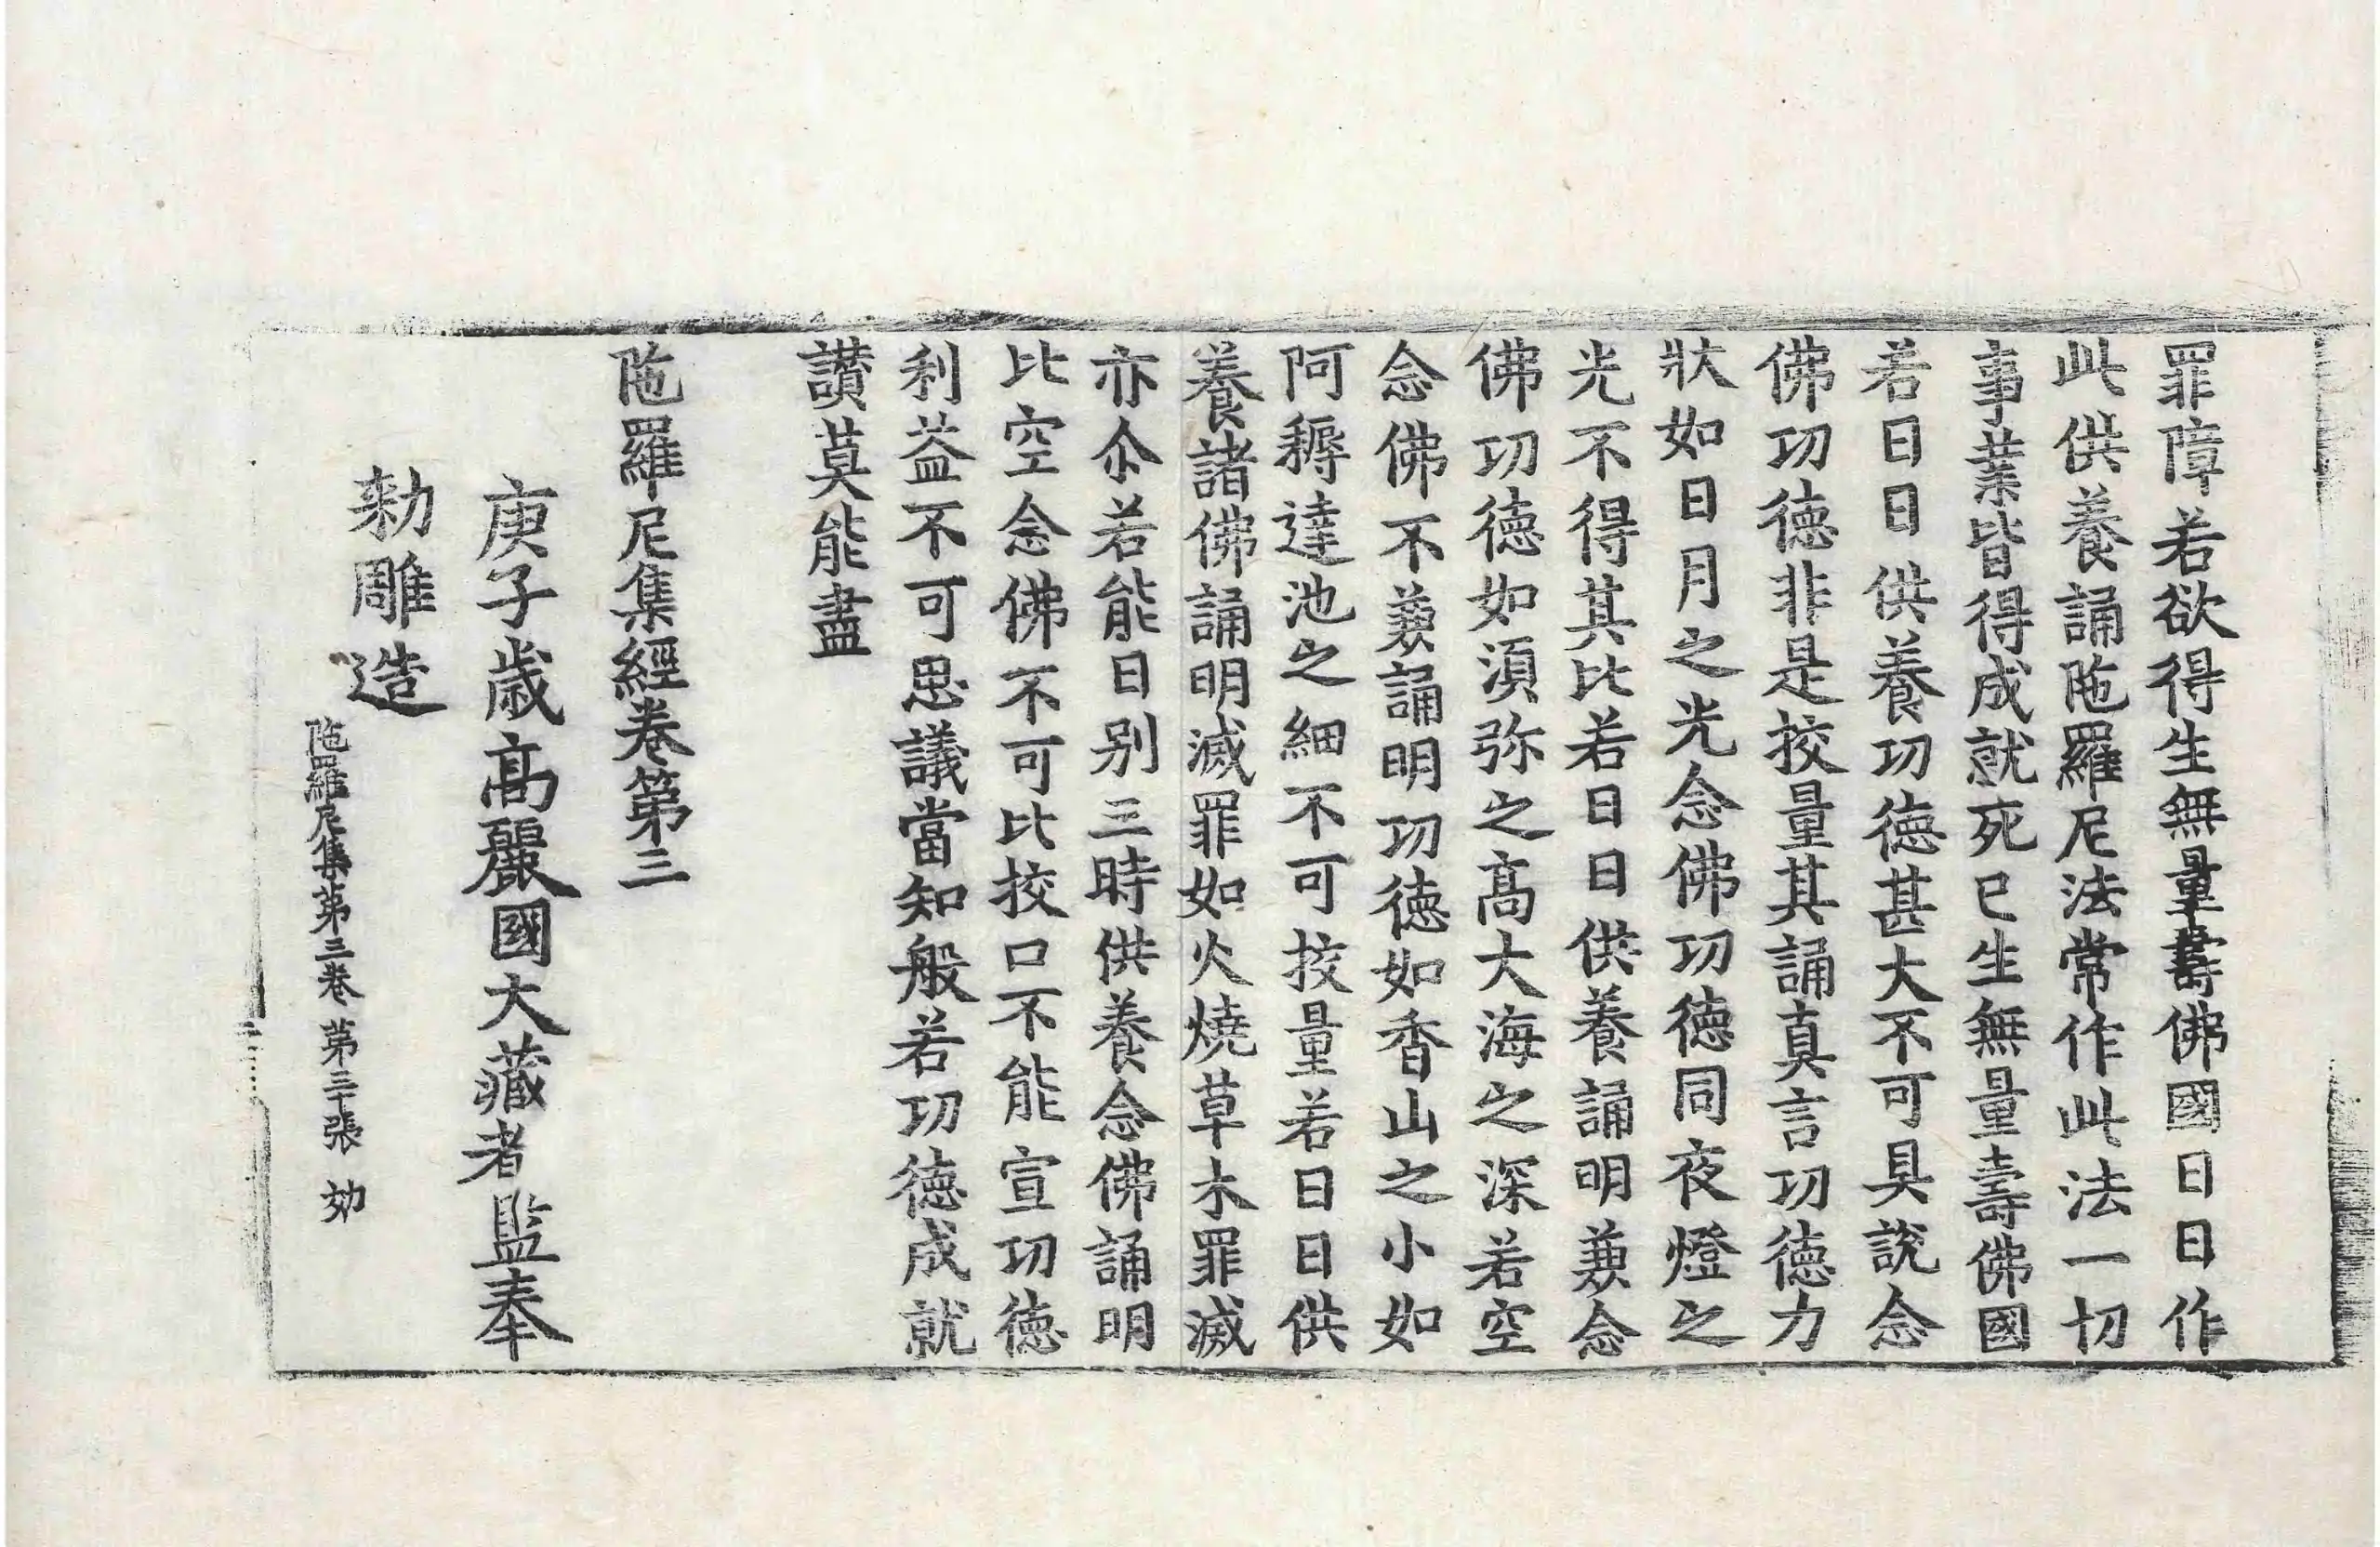 罪障若欲得生無量壽佛國日日作
此供養誦陁羅尼法常作此法一切
事業皆得成就死已生無量壽佛國
若日日供養功德甚大不可具說念
佛功德非是挍量其誦真言功德力
狀如日月之光念佛功德同夜燈之
光不得其比若日日供養誦明兼念
佛功德如須弥之高大海之深若空
念佛不兼誦明功德如香山之小如
阿耨達池之細不可挍量若日日供
養諸佛誦明滅罪如火燒草木罪滅
亦尒若能日別三時供養念佛誦明
比空念佛不可比挍口不能宣功德
利益不可思議當知般若功德成就
讃莫能盡
陁羅尼集經卷第三
庚子歳高麗國大藏者監奉
勑雕造
陁羅尼集第三卷 第三十張 幼